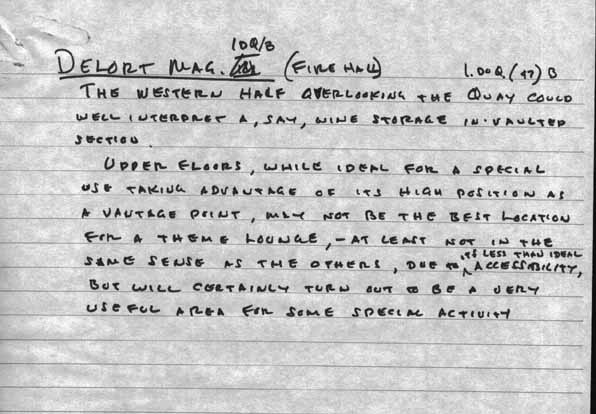 1DQ/B
DELORT MAG. (FIRE HALL) 1.DOQ.(47) B
THE WESTERN HALF OVERLOOKING THE QUAY COULD
WELL INTERPRET A, SAY, WINE STORAGE IN VAULTED
SECTION.
UPPER FLOORS, WHILE IDEAL FOR A SPECIAL
USE TAKING ADVANTAGE OF ITS HIGH POSITION AS
A VANTAGE POINT, MAY NOT BE THE BEST LOCATION
FOR A THEME LOUNGE, - AT LEAST NOT IN THE
ITS LESS THAN IDEAL
SAME SENSE AS THE OTHERS, DUE TO ACCESSIBILITY,
BUT WILL CERTAINLY TURN OUT TO BE A VERY
USEFUL AREA FOR SOME SPECIAL ACTIVITY